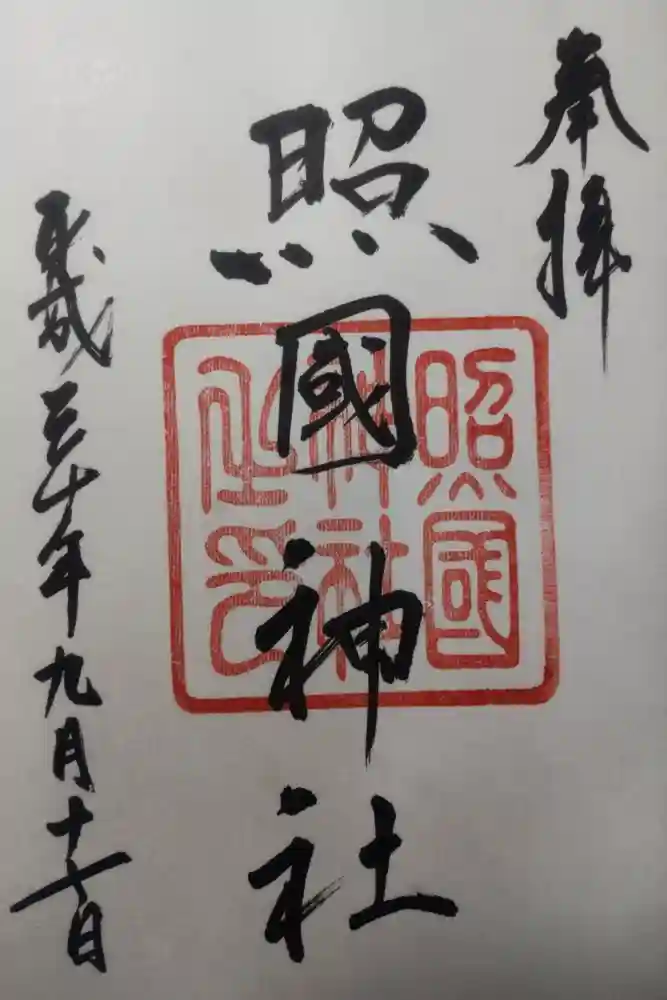 奉拝
照國神社
平成三十年九月十七日
照國
神社
之印